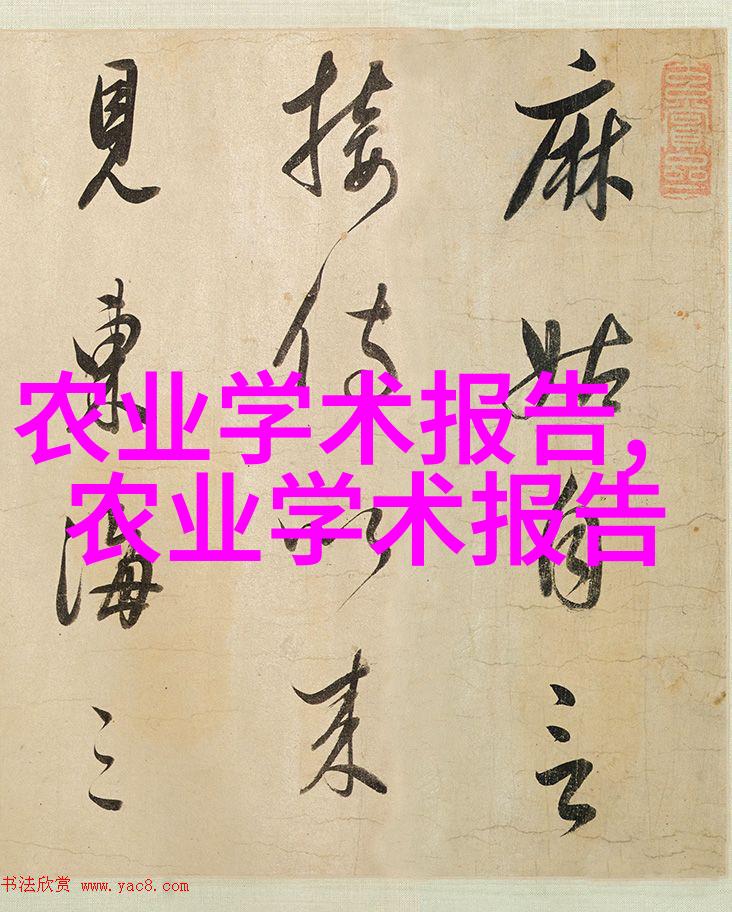 麻姑自言
接侍以来
見東海三
农业学术报告,
农业学术报告
书法欣赏 www.yac8.com